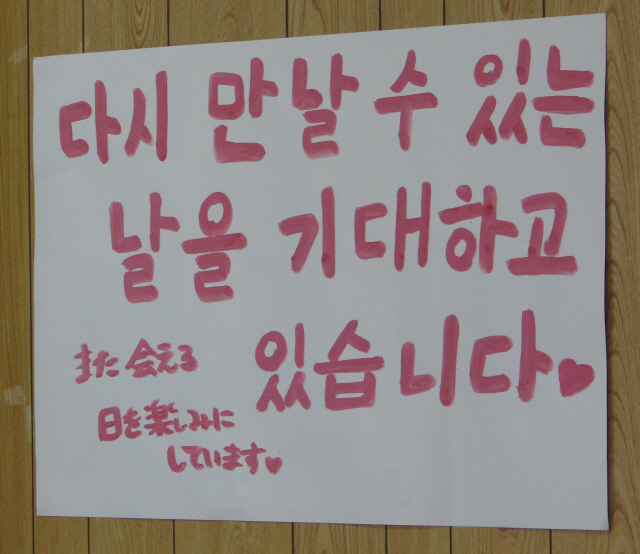 다시 만날 수 있는
날을 기대하고
있습니다♥
また会える
日を楽しみに
しています♥